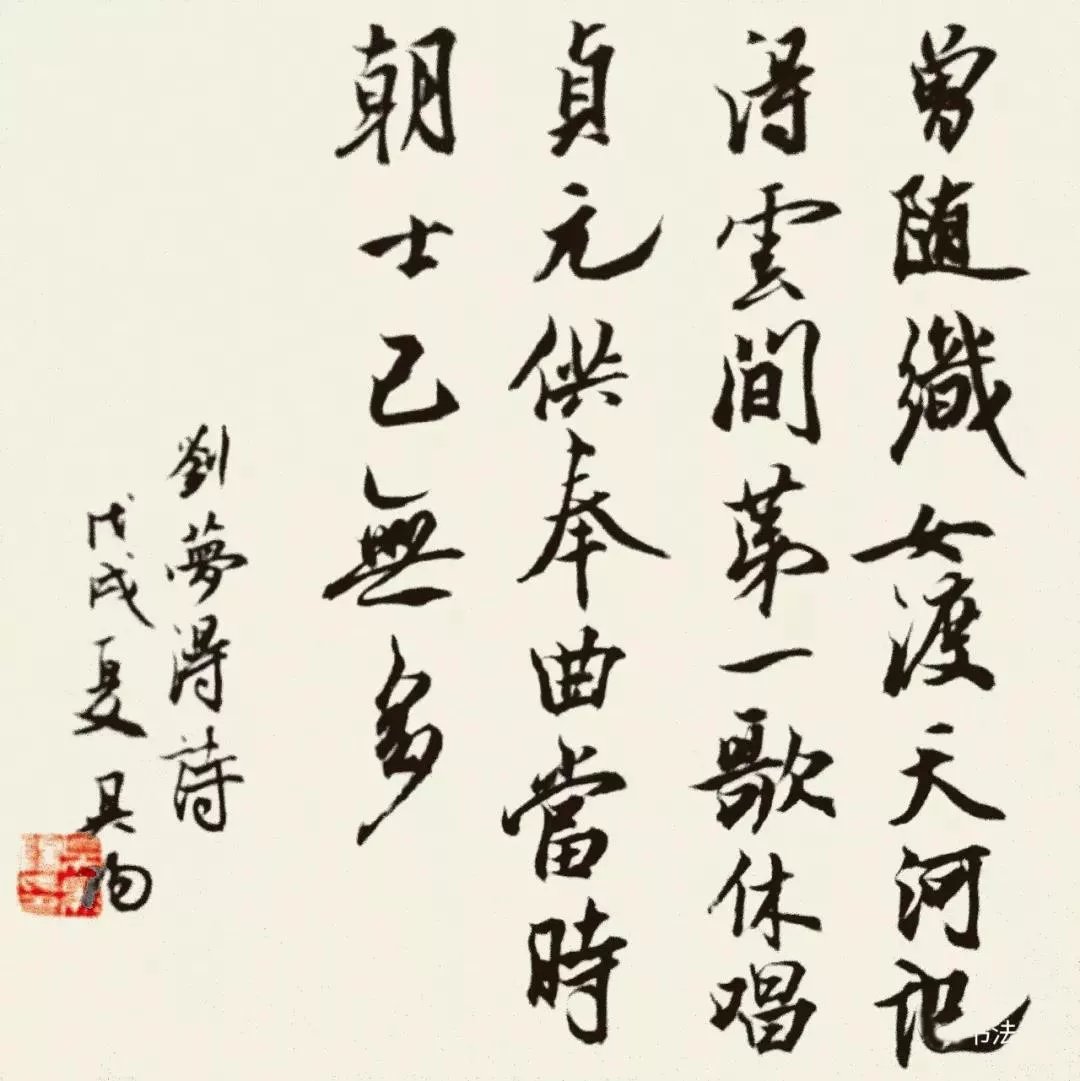 曾随織女渡天河記
得雲間第一歌休唱
貞元供奉曲當時
朝士已無多
劉夢得詩
戊戌夏
书法